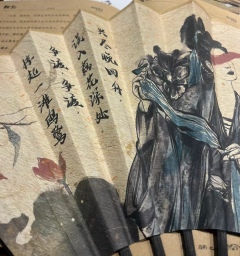 兴尽晚回舟，
误入藕花深处。
争渡，争渡，
惊起一滩鸥鹭